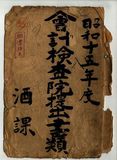 昭和十五年度
會計檢査院提出書類
酒課